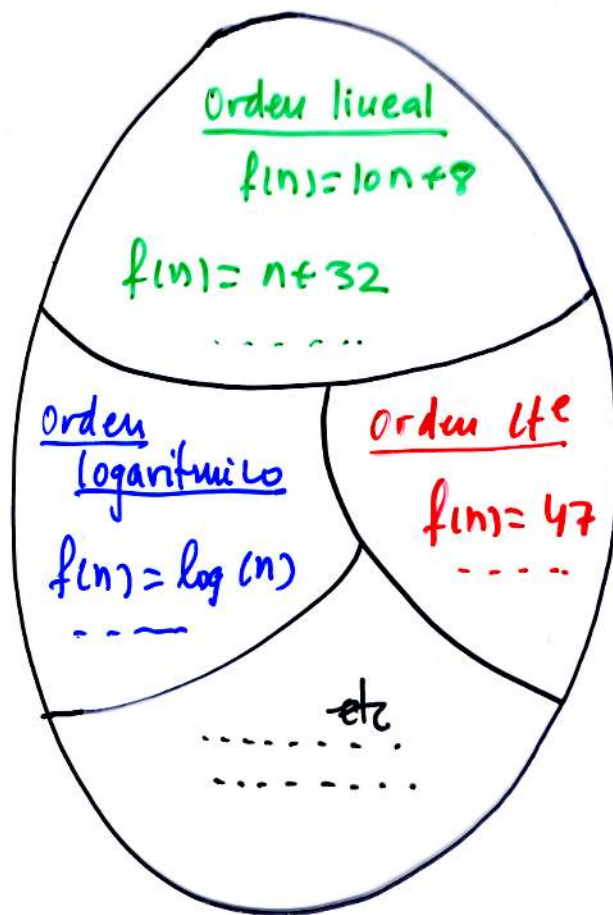 Orden lineal
f(n)=10n+8
f(n)= n+32
Orden
logaritmico
f(n)=log(n)
Orden cte
f(n)= 47
etc